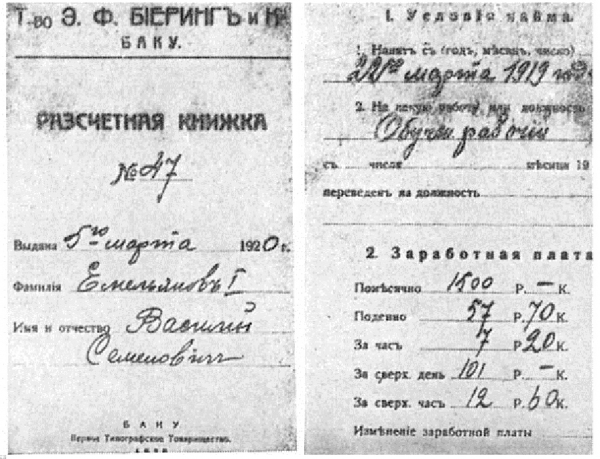 Т-во Э. Ф. БІЕРИНГЪ и Ко
БАКУ.
РАЗСЧЕТНАЯ КНИЖКА
№ 47
Выдана 5го марта 1920 г.
Фамилія Емельяновъ I
Имя и отчество Василий
Семенович
БАКУ
Первое Типографское Товарищество.
1. Условія найма.
1. Нанятъ съ (годъ, мѣсяцъ, число)
22го марта 1919 года
2. На какую работу или должность
рабочій
съ числа мѣсяца 19
переведенъ на должность
2. Заработная плата
Помѣсячно 1500 Р. — К.
Поденно 57 Р. 70 К.
За часъ 7 Р. 20 К.
За сверх. день 101 Р. — К.
За сверх. часъ 12 Р. 60 К.
Измѣненіе заработной платы